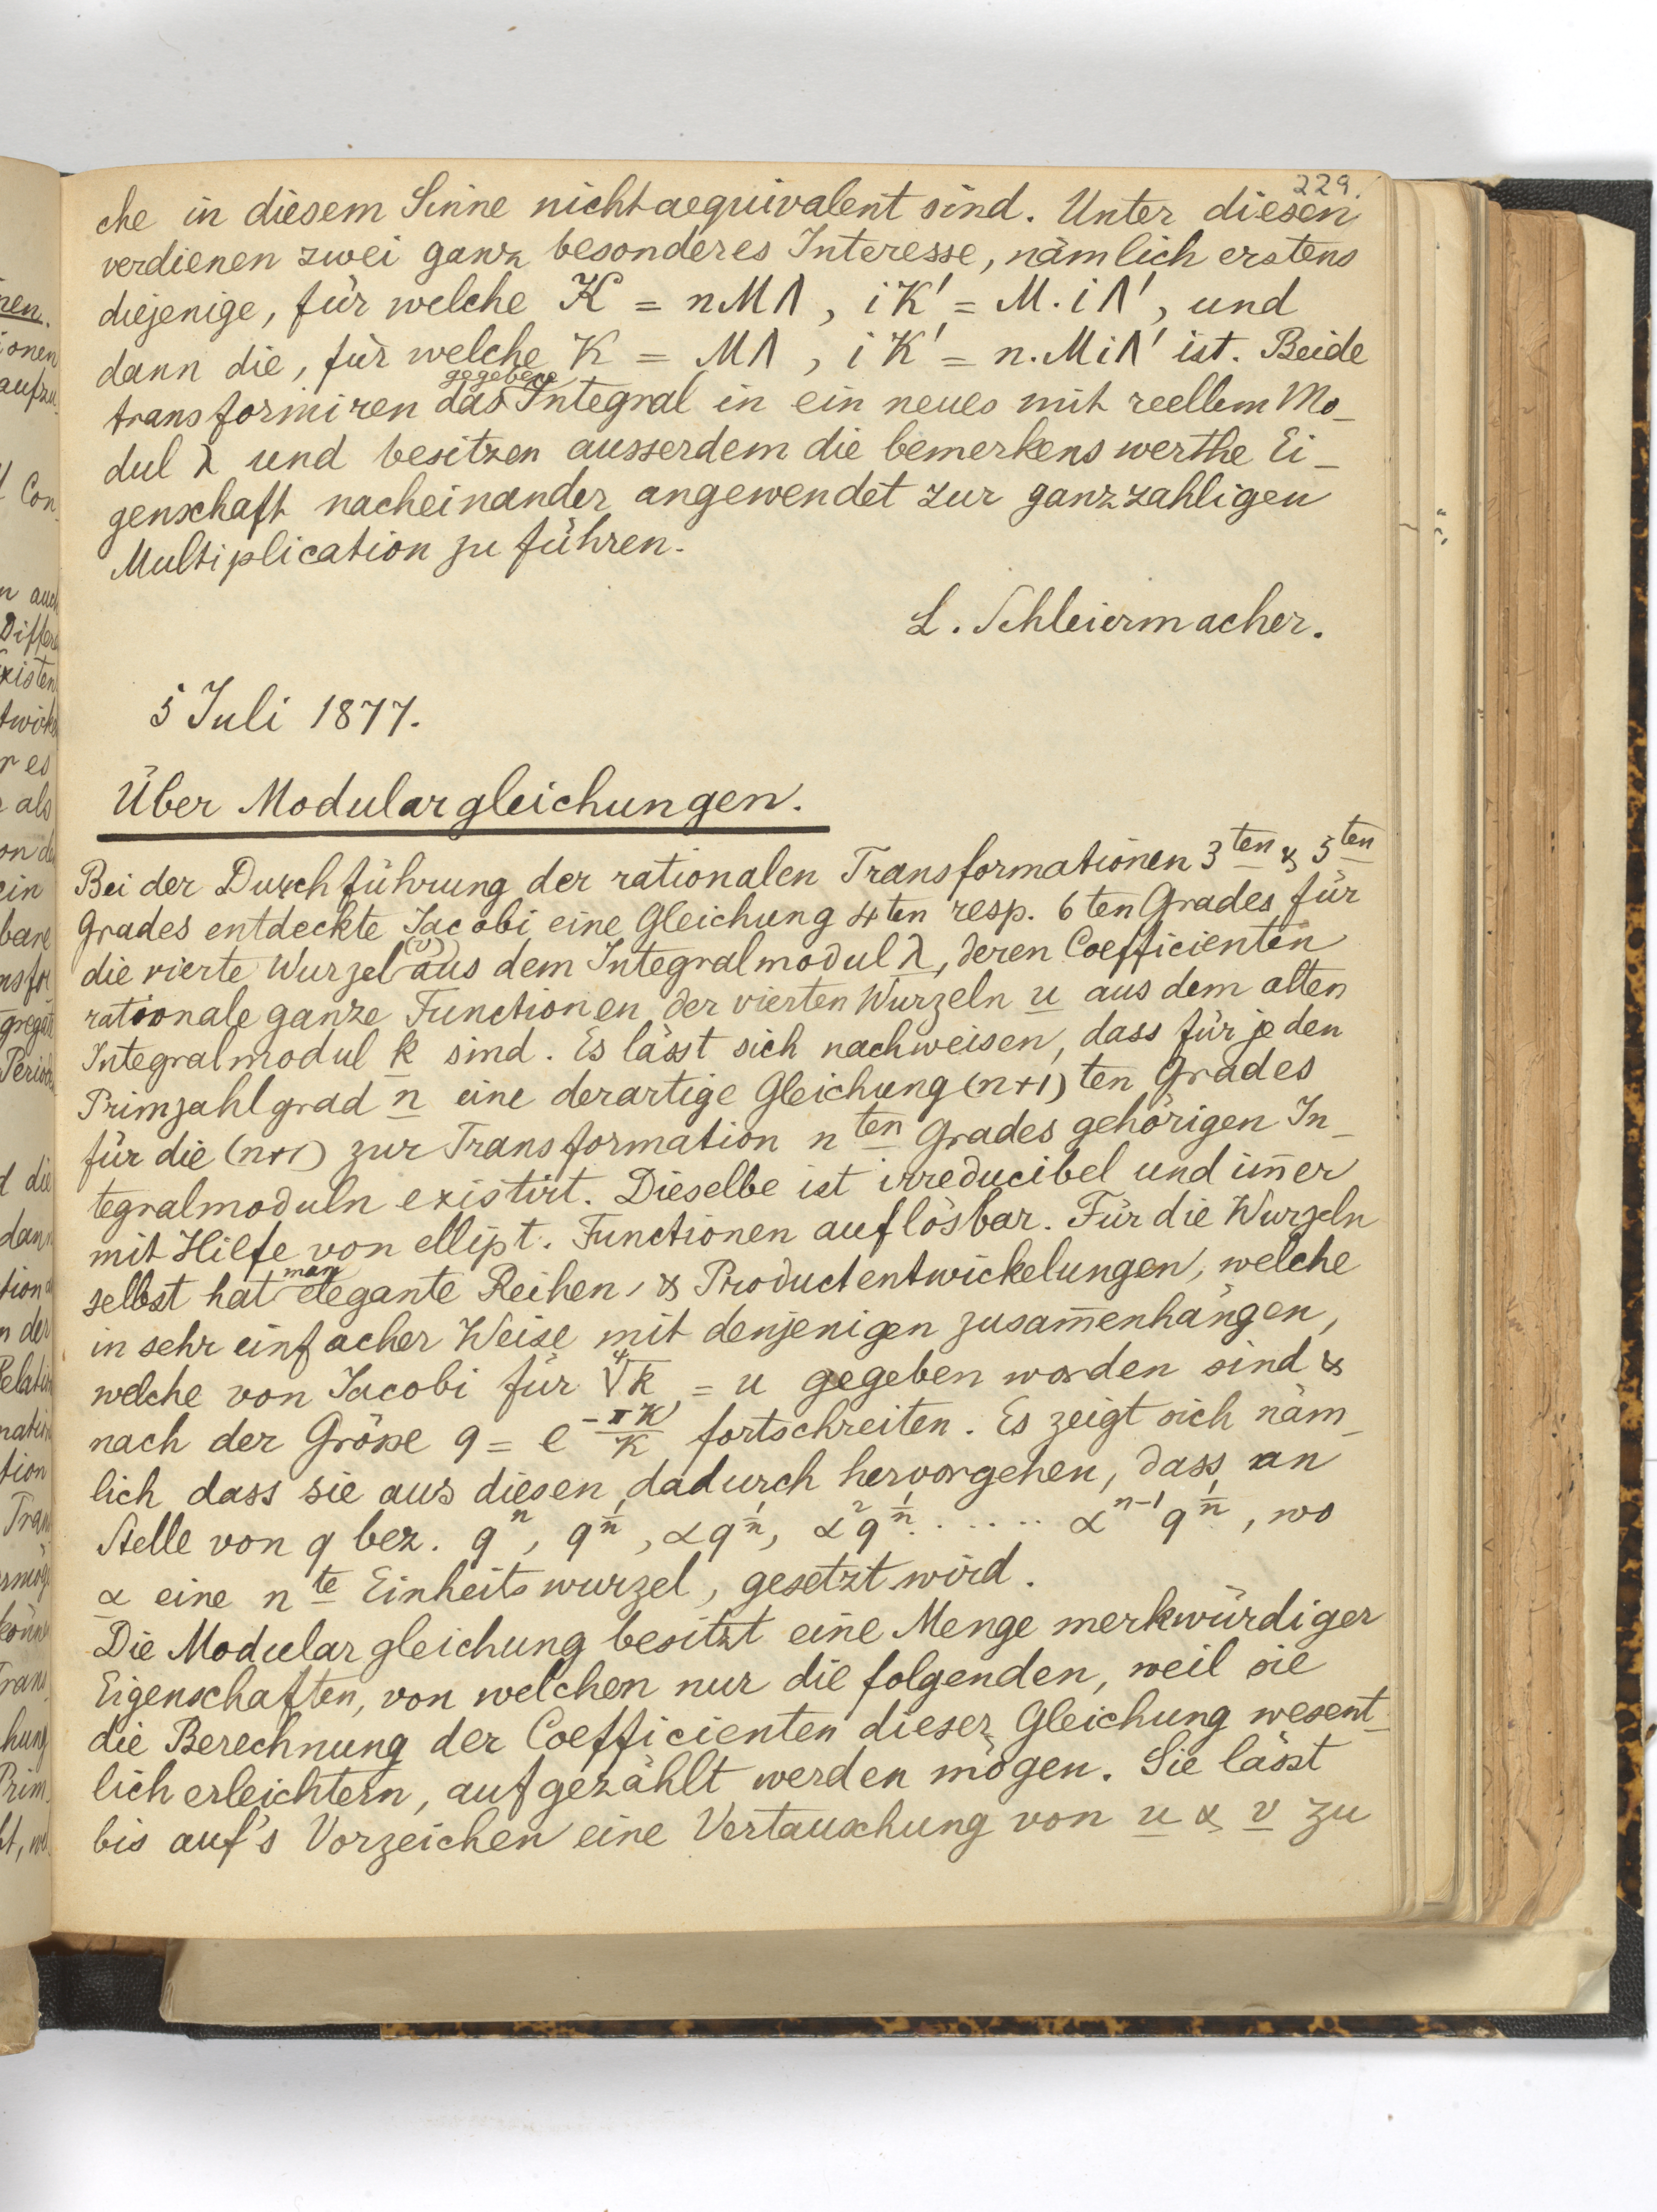 229.
che in diesem Sinne nicht aequivalent sind. Unter diesen
verdienen zwei ganz besonderes Interesse, nämlich erstens
diejenige, für welche K = nMΛ, iK' = M.iΛ', und
dann die, für welche K = MΛ, iK' = n.MiΛ' ist. Beide
gegebene
transformiren das Integral in ein neues mit reellem Mo-
dul λ und besitzen ausserdem die bemerkenswerthe Ei-
genschaft nacheinander angewendet zur ganzzahligen
Multiplication zu führen.
L. Schleiermacher.
5 Juli 1877.
Über Modulargleichungen.
Bei der Durchführung der rationalen Transformationen 3ten & 5ten
Grades entdeckte Jacobi eine Gleichung 4ten resp. 6ten Grades für
(v)
die vierte Wurzel aus dem Integralmodul λ, deren Coefficienten
rationale ganze Functionen der vierten Wurzeln u aus dem alten
Integralmodul k sind. Es lässt sich nachweisen, dass für jeden
Primzahlgrad n eine derartige Gleichung (n+1)ten Grades
für die (n+1) zur Transformation nten Grades gehörigen In-
tegralmoduln existirt. Dieselbe ist irreducibel und im̄er
mit Hilfe von ellipt. Functionen auflösbar. Für die Wurzeln
man
selbst hat elegante Reihen, & Productentwickelungen, welche
in sehr einfacher Weise mit denjenigen zusam̄enhängen,
welche von Jacobi für ∜k = u gegeben worden sind &
nach der Größe q = e^(-πK'/K) fortschreiten. Es zeigt sich näm-
lich dass sie aus diesen dadurch hervorgehen, dass an
Stelle von q bez. q^n, q^(1/n), αq^(1/n), α²q^(1/n) ...... α^(n-1) q^(1/n), wo
α eine nte Einheitswurzel, gesetzt wird.
Die Modulargleichung besitzt eine Menge merkwürdiger
Eigenschaften, von welchen nur die folgenden, weil sie
die Berechnung der Coefficienten dieser Gleichung wesent-
lich erleichtern, aufgezählt werden mögen. Sie lässt
bis auf's Vorzeichen eine Vertauschung von u & v zu